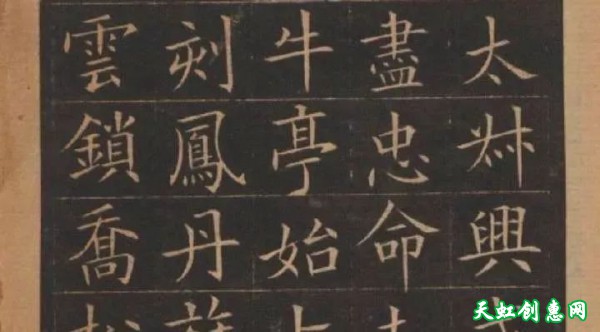 太興
盡忠命
牛亭始
刻鳳丹
雲鎖喬
天虹创惠网